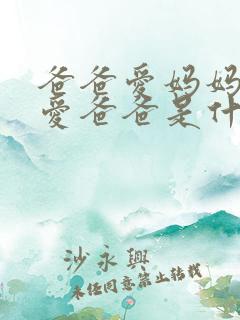 爸爸愛妈妈
愛爸爸是什
沙永興
未经同意禁止转载